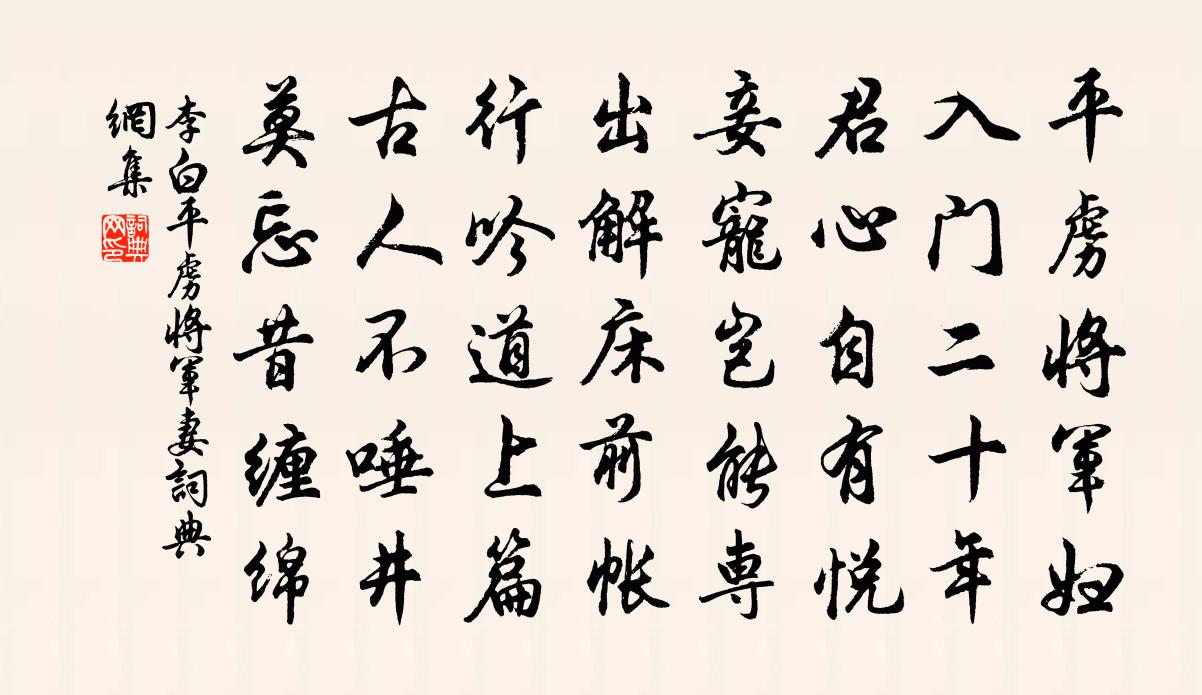 平虏将军妇
入门二十年
君心自有悦
妾寵岂能専
出解床前帐
行吟道上篇
古人不唾井
莫忘昔缠绵
李白平虏将軍妻詞典
網集
詞典
网印